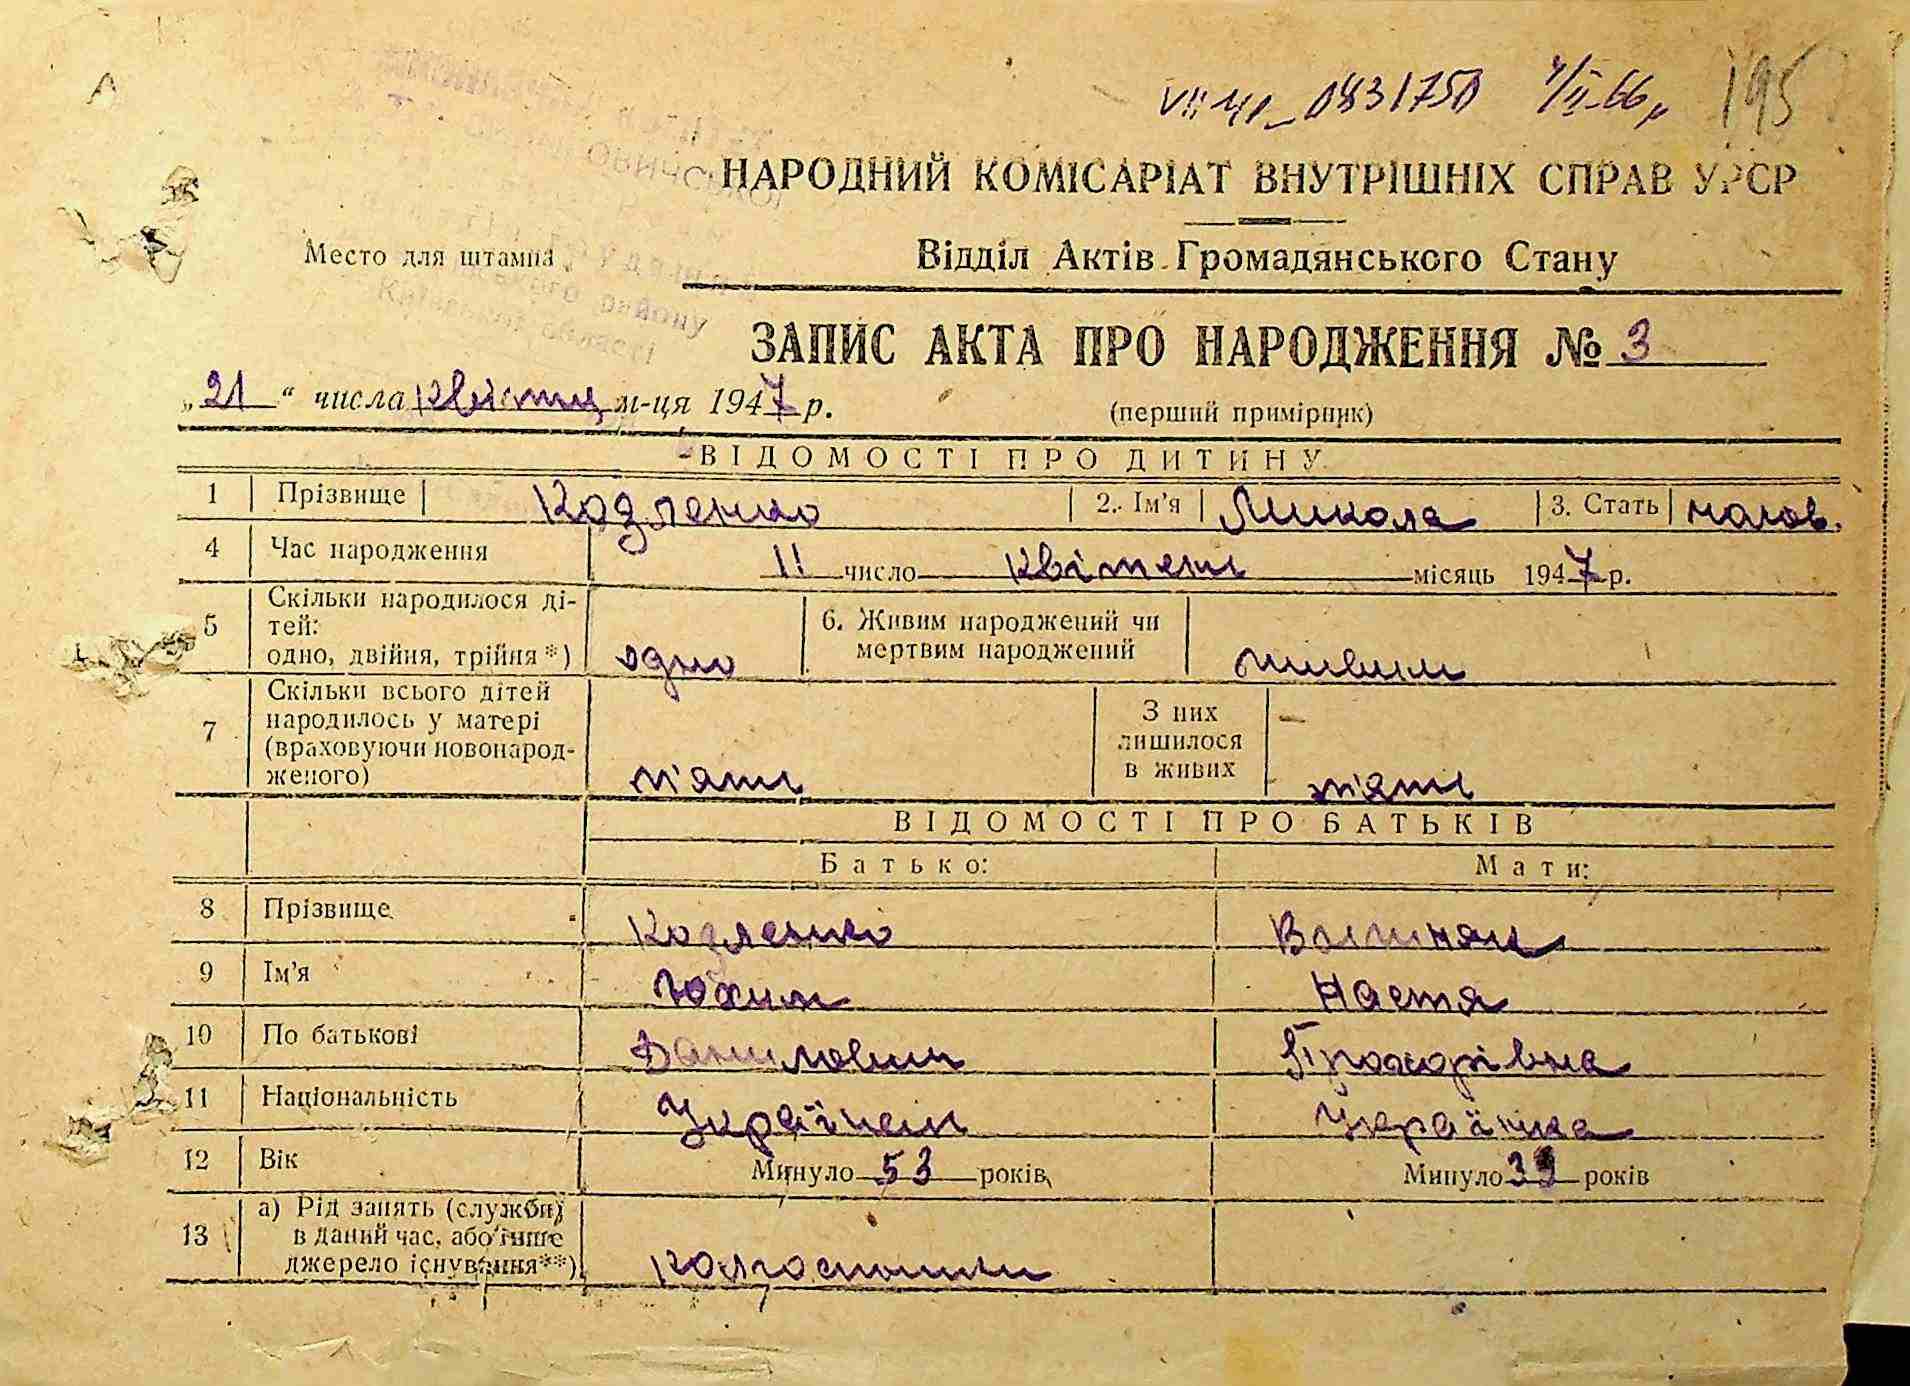 195
НАРОДНИЙ КОМІСАРІАТ ВНУТРІШНІХ СПРАВ УРСР
Место для штампа
Відділ Актів Громадянського Стану
району
Київської області
ЗАПИС АКТА ПРО НАРОДЖЕННЯ № 3
„21“ числа квітня м-ця 1947 р.
(перший примірник)
ВІДОМОСТІ ПРО ДИТИНУ
1 Прізвище Козленко 2. Ім'я Микола 3. Стать чолов.
4 Час народження 11 число квітень місяць 1947 р.
5 Скільки народилося ді-
тей:
одно, двійня, трійня*) одно
6. Живим народжений чи
мертвим народжений живим
7 Скільки всього дітей
народилось у матері
(враховуючи новонарод-
женого) п'ять
З них
лишилося
в живих п'ять
ВІДОМОСТІ ПРО БАТЬКІВ
Батько: Мати:
8 Прізвище Козленко
9 Ім'я Юхим Настя
10 По батькові Данилович Прохорівна
11 Національність Українець Українка
12 Вік Минуло 53 років Минуло 39 років
13 а) Рід занять (служби)
в даний час, або інше
джерело існування**) колгоспник